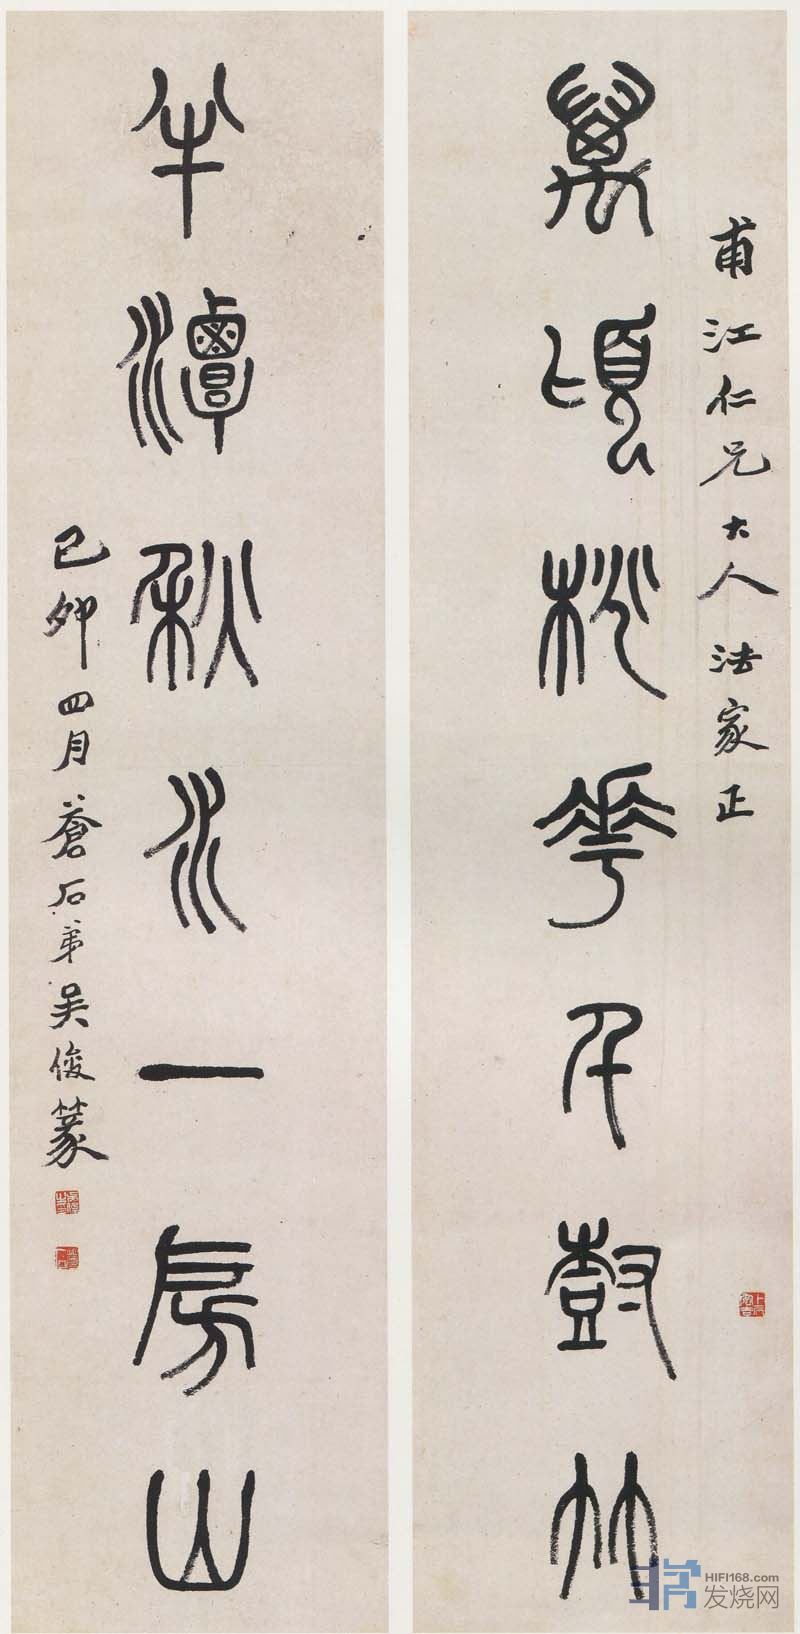 甫江仁兄大人法家正
萬頃桃花千尌竹
半潭秋水一房山
己卯四月蒼石弟吳俊篆
HIFI168.com
发烧网